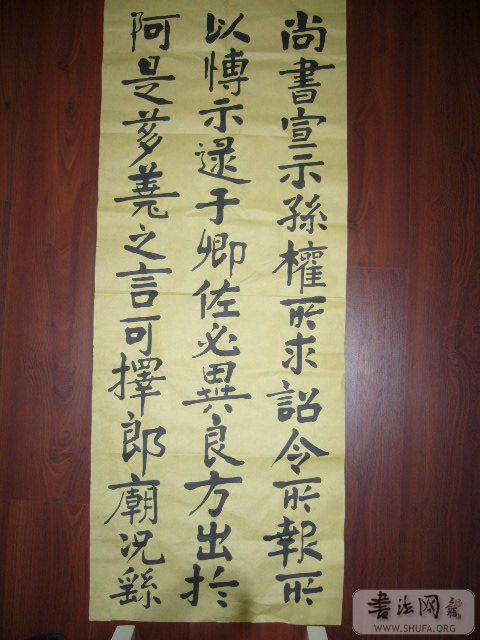 尚書宣示孫權所求詔令所報所
以博示逮于卿佐必異良方出於
阿是芻蕘之言可擇郎廟況繇
書法网
WWW.SHUFA.ORG